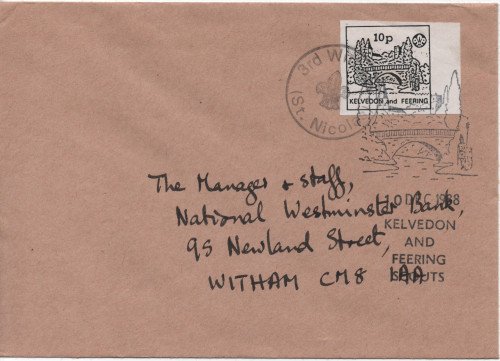 10p
KELVEDON and FEERING
3rd Wi
(St. Nicol
The Manager & Staff,
National Westminster Bank,
95 Newland Street,
WITHAM CM8 1AA
10 DEC 1988
KELVEDON
AND
FEERING
SCOUTS